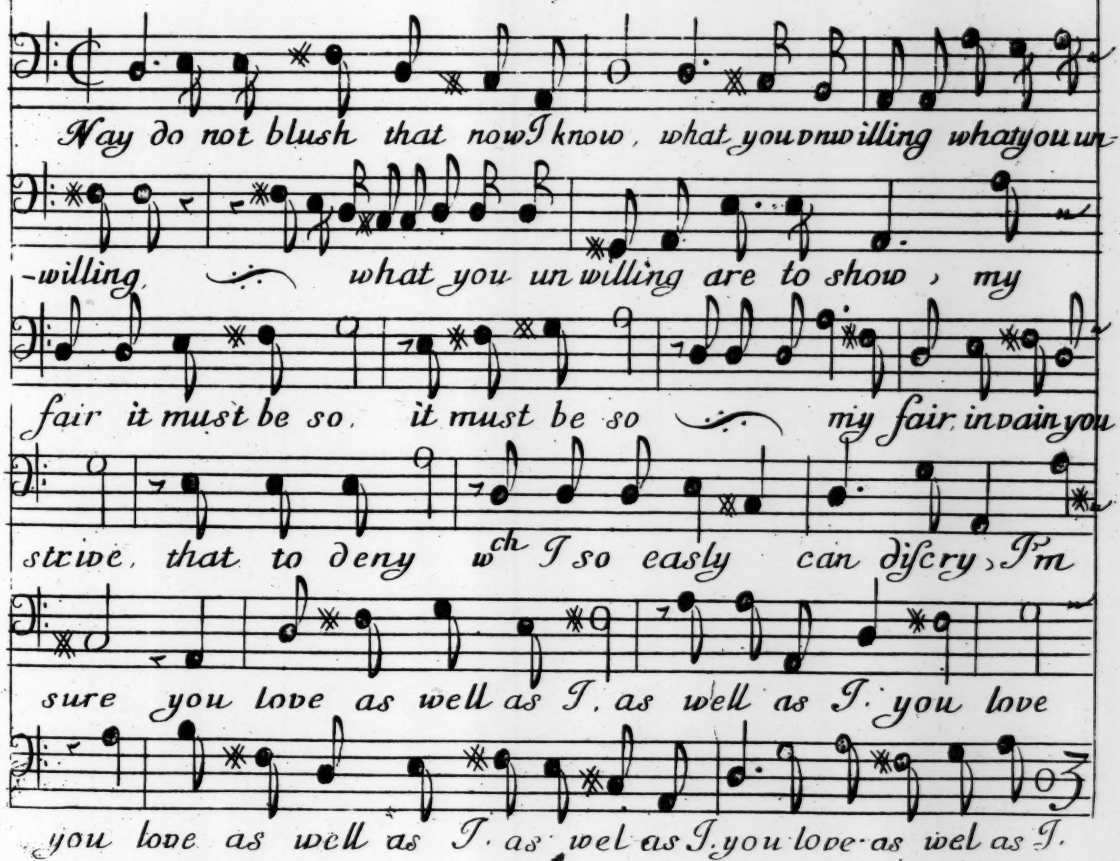 Nay do not blush that now I know, what you vnwilling what you un-
-willing, what you unwilling are to show, my
fair it must be so, it must be so my fair, in vain you
strive, that to deny wch I so easly can discry, I'm
sure you love as well as I, as well as I. you love
you love as well as I. as wel as I. you love as wel as I.